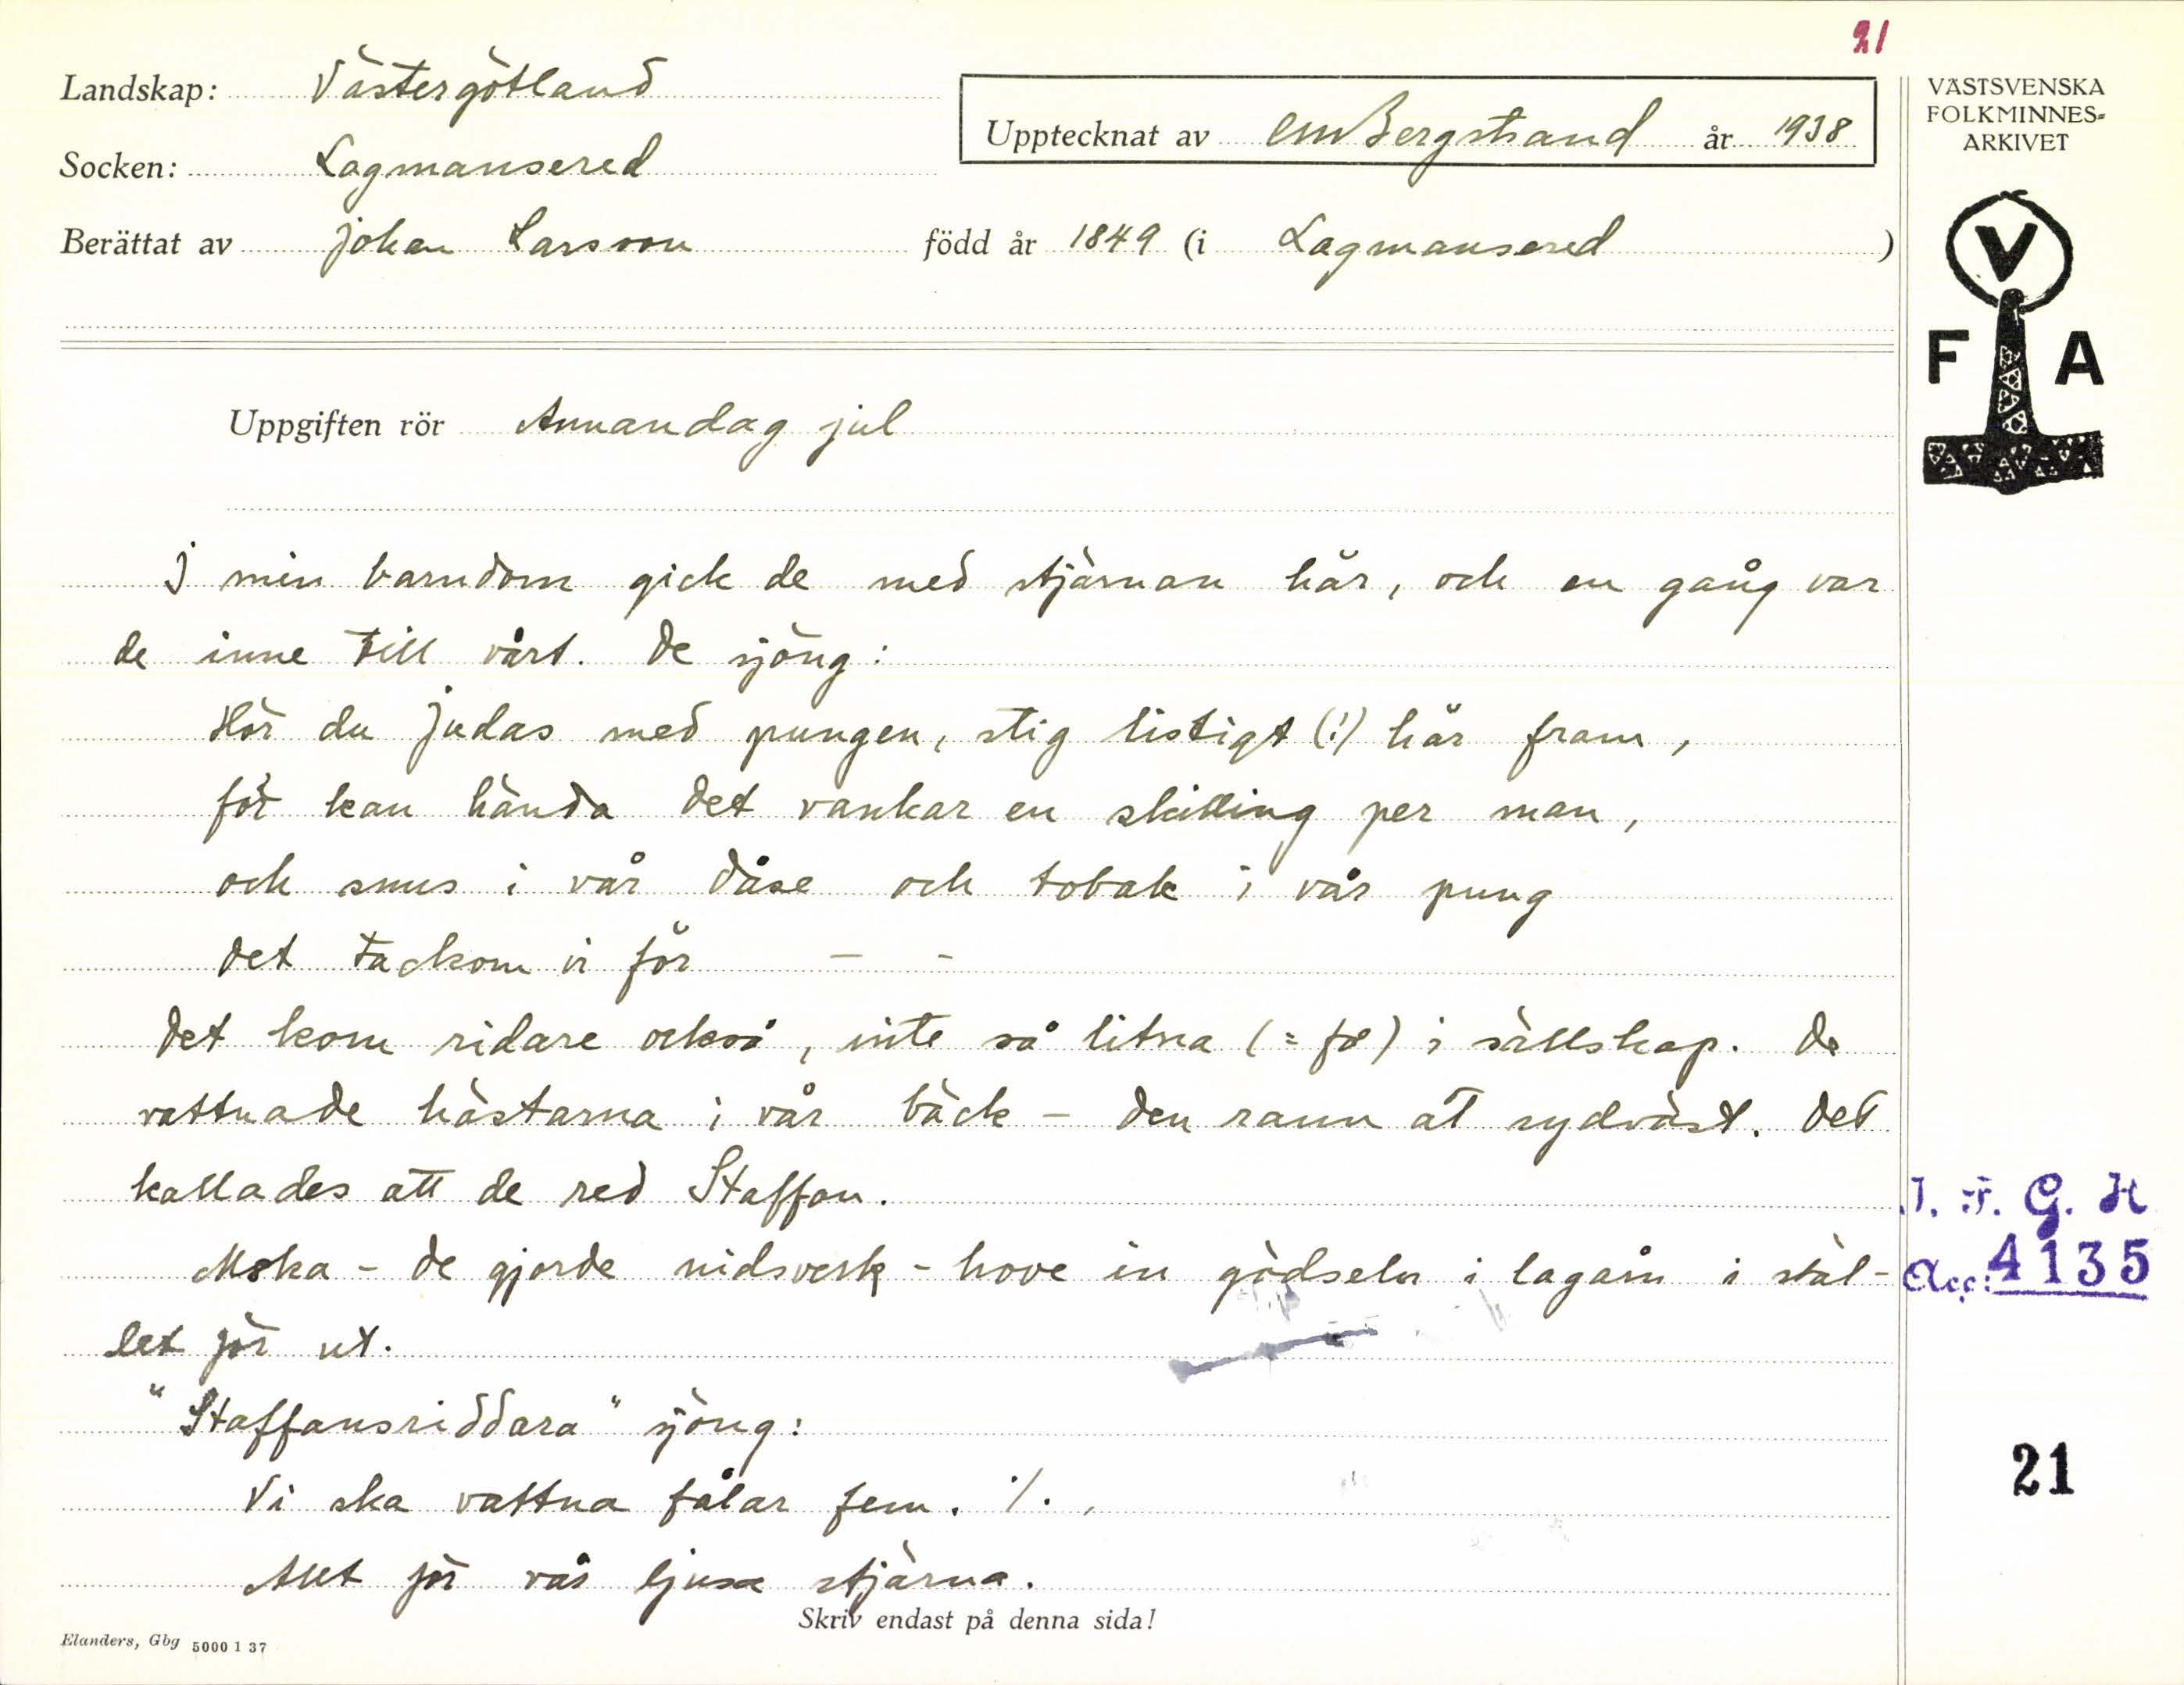 21
Landskap: Västergötland
Upptecknat av CM Bergstrand år 1938
Socken: Lagmansered
Berättat av Johan Larsson född år 1849 (i Lagmansered )
VÄSTSVENSKA
FOLKMINNES-
ARKIVET
V
F A
Uppgiften rör Annandag jul
I min barndom gick de med stjärnan här, och en gång var
de inne till vårt. De sjöng:
Hör du Judas med pungen, stig listigt (!) här fram,
för kan hända det vankar en skilling per man,
och snus i vår dåse och tobak i vår pung
det tackom vi för — -
Det kom ridare också, inte så litna (= få) i sällskap. De
vattnade hästarna i vår bäck - den rann åt sydväst. Det
kallades att de red Staffan.
- de gjorde nidsverk - hove in gödseln i lagårn i stäl-
let för ut.
"Staffansriddara" sjöng:
Vi ska vattna fålar fem. ./.
Allt för vår ljusa stjärna.
I. F. G. H
Acc: 4135
21
Skriv endast på denna sida!
Elanders, Gbg 5000 1 37